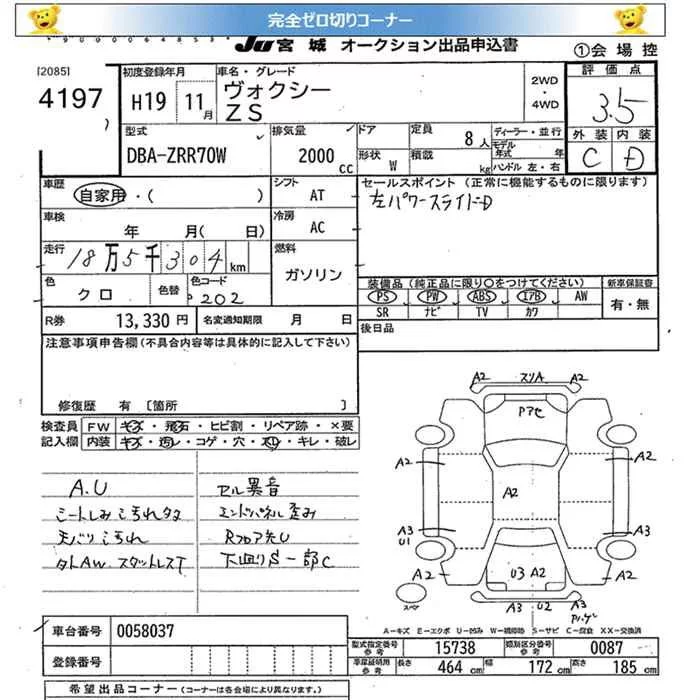 完全ゼロ切りコーナー
JU 宮城 オークション出品申込書
①会場控
[2085]
4197
初度登録年月
H19 11月
車名・グレード
ヴォクシー
ZS
2WD
・
4WD
評価点
3.5
外装 内装
C D
型式
DBA-ZRR70W
排気量
2000 cc
ドア
形状 W
定員 8人
積載 kg
ディーラー・並行
モデル年式 年
ハンドル 左・右
車歴 自家用・( )
シフト AT
セールスポイント (正常に機能するものに限ります)
左パワースライドD
車検 年 月( 日)
冷房 AC
走行 18万5千304km
燃料 ガソリン
色 クロ
色替
色コード 202
装備品 (純正品に限り○をつけてください)
新車保証書
PS PW ABS エアB AW
SR ナビ TV カワ
有・無
R券 13,330円
名変通知期限 月 日
後日品
注意事項申告欄 (不具合内容等は具体的に記入して下さい)
修復歴 有 [箇所 ]
検査員記入欄
FW キズ・飛石・ヒビ割・リペア跡・×要
内装 キズ・汚レ・コゲ・穴・スレ・キレ・破レ
A.U
シートしみ汚れタタ
天バリ汚れ
外AW スタットレスT
セル異音
エンドパネル歪み
Rフロア先U
下廻りS一部C
A2 スリA A2
Pアセ
A2 A2
A2
A3 A3
U1
A2 U3 A2 A2
A3 U2 A3
スペア
A-キズ E-エクボ U-凹み W-補修跡 S-サビ C-腐食 XX-交換済
車台番号 0058037
型式指定番号 参考 15738
類別区分番号 参考 0087
登録番号
車庫証明用 参考 長さ 464 cm 幅 172 cm 高さ 185 cm
希望出品コーナー (コーナーは各会場により異なります。)